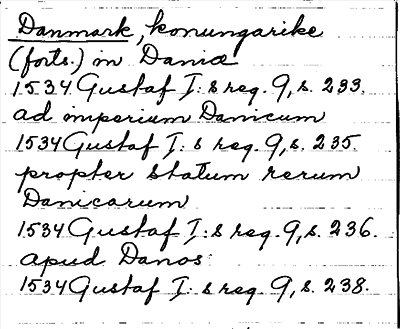 Danmark, konungarike
(forts.) in Dania
1534 Gustaf I:s reg. 9, s. 233.
ad imperium Danicum
1534 Gustaf I:s reg. 9, s. 235.
propter statum rerum
Danicarum
1534 Gustaf I:s reg. 9, s. 236.
apud Danos
1534 Gustaf I:s reg. 9, s. 238.